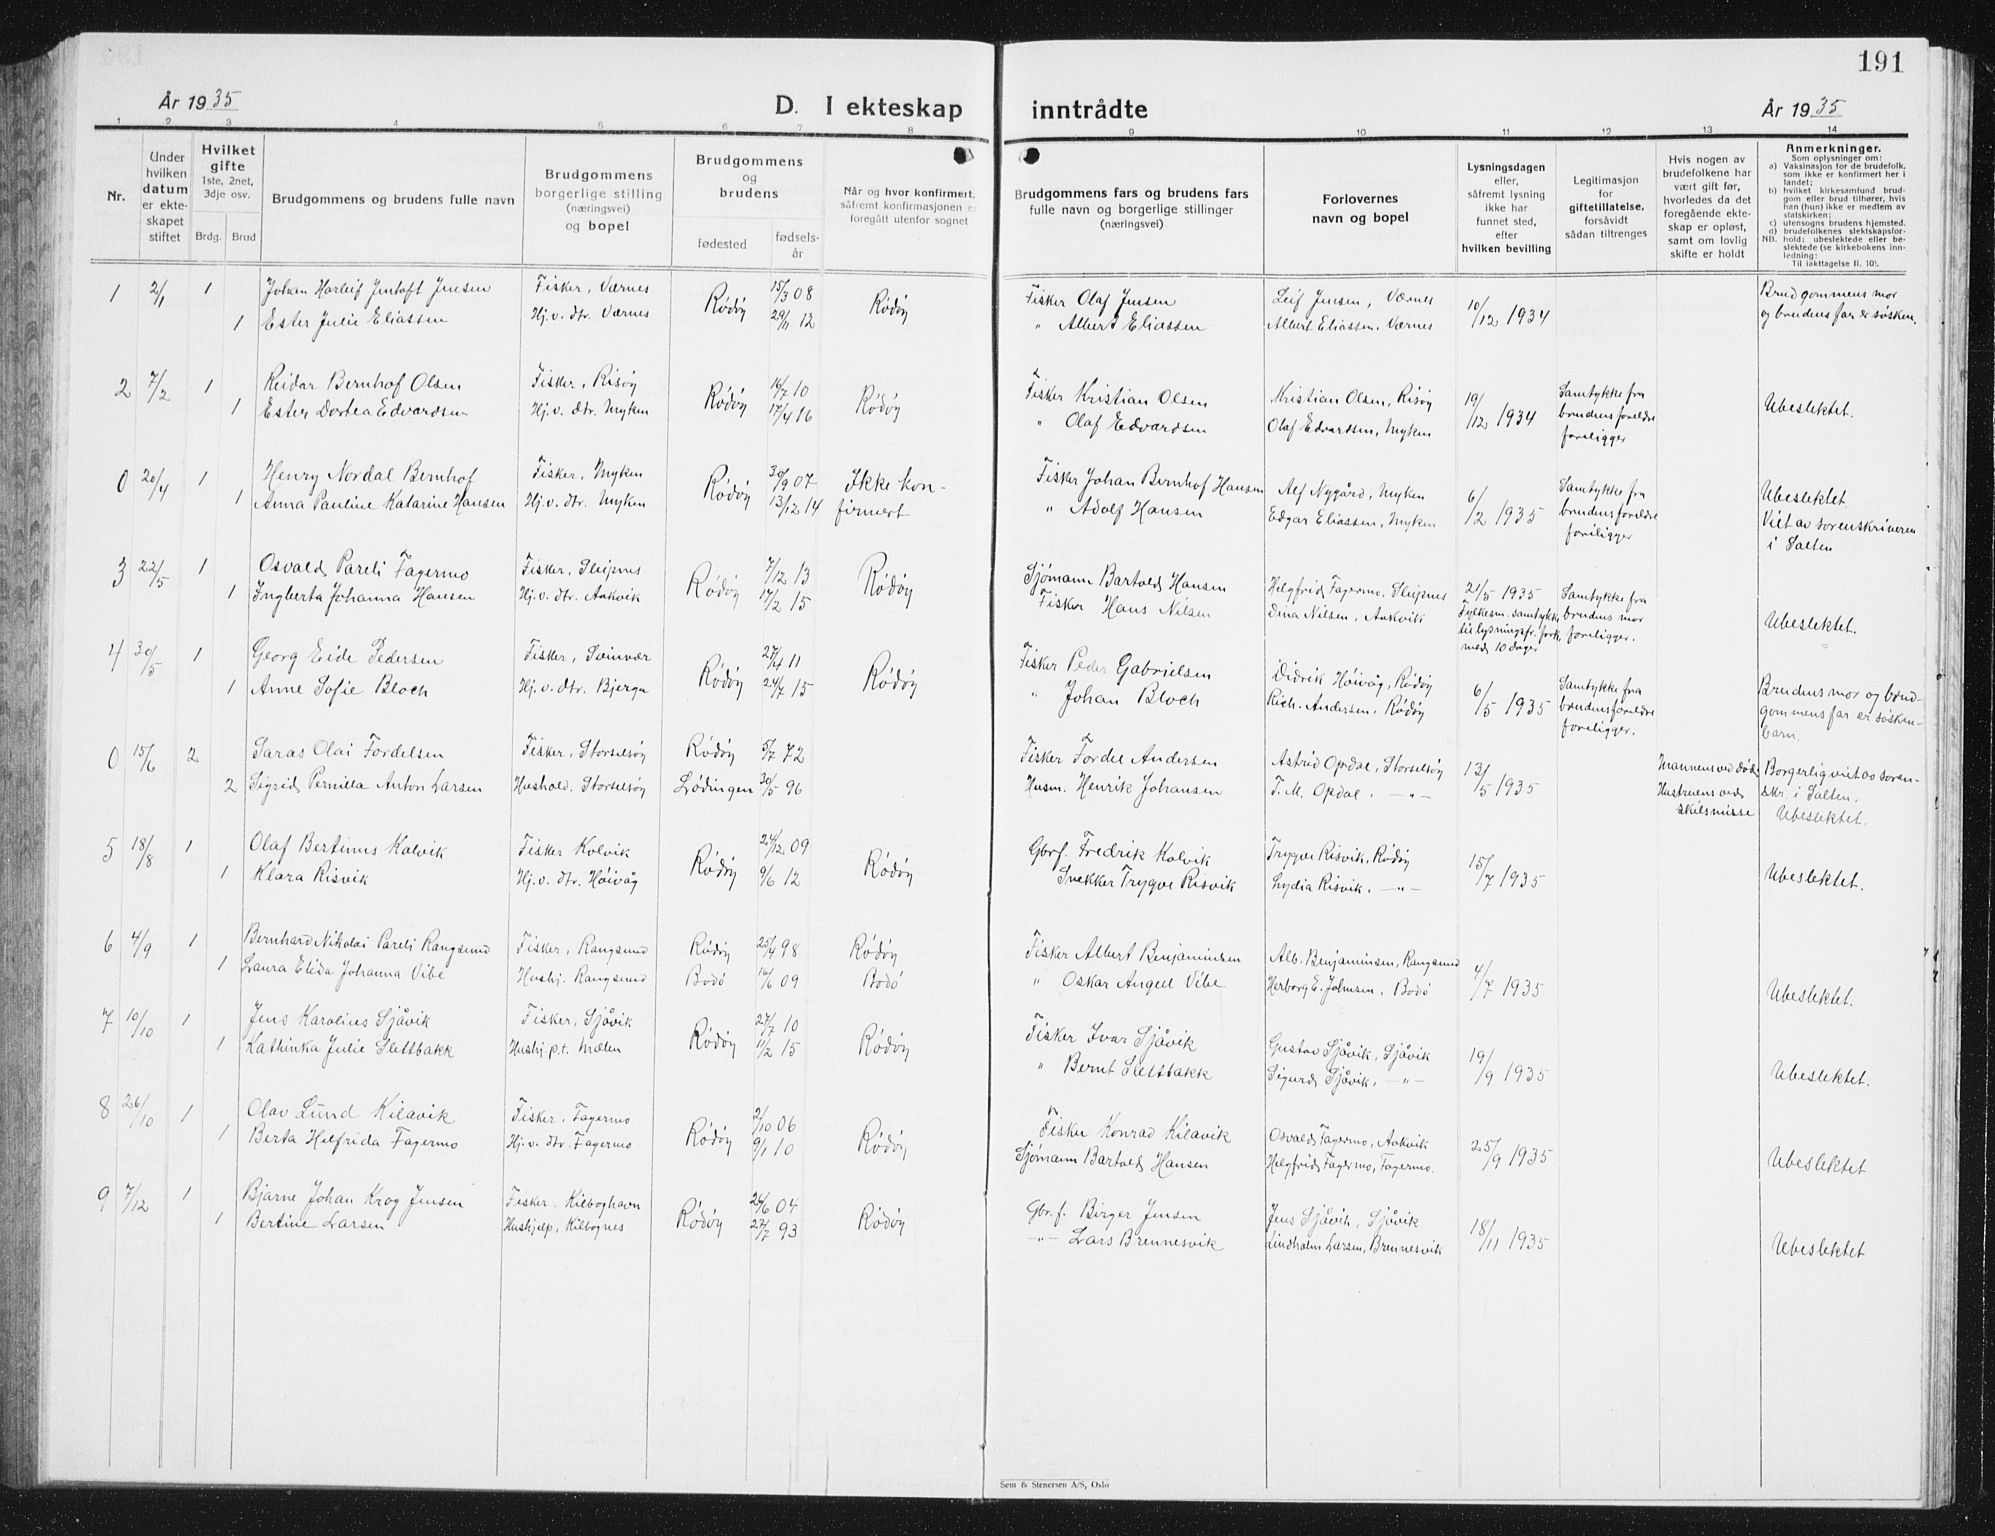 191
År 1935
D. I ekteskap inntrådte
År 1935
1 2 3 4 5 6 7 8 9 10 11 12 13 14
Nr.
Under hvilken datum er ekteskapet stiftet
Hvilket gifte 1ste, 2net, 3dje osv.
Brdg. Brud
Brudgommens og brudens fulle navn
Brudgommens borgerlige stilling (næringsvei) og bopel
Brudgommens og brudens
fødested
fødselsår
Når og hvor konfirmert, såfremt konfirmasjonen er foregått utenfor sognet
Brudgommens fars og brudens fars fulle navn og borgerlige stillinger (næringsvei)
Forlovernes navn og bopel
Lysningsdagen eller, såfremt lysning ikke har funnet sted, efter hvilken bevilling
Legitimasjon for giftetillatelse, forsåvidt sådan tiltrenges
Hvis nogen av brudefolkene har vært gift før, hvorledes da det foregående ekteskap er opløst, samt om lovlig skifte er holdt
Anmerkninger.
Som oplysninger om:
a) Vaksinasjon for de brudefolk, som ikke er konfirmert her i landet;
b) hvilket kirkesamfund brudgom eller brud tilhører, hvis han (hun) ikke er medlem av statskirken;
c) utensogns brudens hjemsted.
d) brudefolkenes slektskapsforhold: ubeslektede eller beslektede (se kirkebokens innledning:
NB.
Til iakttagelse II. 10).
1 2/1 1 Johan Harleif Jentoft Jensen Fisker, Værnes Rødøy 15/3 08 Rødøy Fisker Olaf Jensen Leif Jensen, Værnes 10/12 1934 Brudgommens mor
1 Ester Julie Eliassen Hj.v. dtr. Værnes 29/11 12 " Albert Eliassen Albert Eliassen, Værnes og brudens far er søsken.
2 7/2 1 Reidar Bernhof Olsen Fisker, Risøy Rødøy 16/7 10 Rødøy Fisker Kristian Olsen Kristian Olsen, Risøy 19/12 1934 Samtykke fra
1 Ester Dortea Edvardsen Hj.v. dtr. Myken 17/4 16 " Olaf Edvardsen Olaf Edvardsen, Myken brudens foreldre foreligger Ubeslektet.
0 20/4 1 Henry Nordal Bernhof Fisker, Myken Rødøy 30/9 07 Ikke kon- Fisker Johan Bernhof Hansen Alf Nygård, Myken 6/2 1935 Samtykke fra Ubeslektet
1 Anna Pauline Katarine Hansen Hj.v. dtr. Myken 13/12 14 firmert " Adolf Hansen Edgar Eliassen, Myken brudens foreldre foreligger Viet av sorenskriveren i Salten
3 22/5 1 Osvald Pareli Fagermo Fisker, Sleipnes Rødøy 7/12 13 Rødøy Sjømann Bartold Hansen Helgfrid Fagermo, Sleipnes 21/5 1935 Samtykke fra
1 Ingberta Johanna Hansen Hj.v. dtr. Aakvik 17/2 15 Fisker Hans Nilsen Dina Nilsen, Aakvik Fylkesm. samtykke til lysningsfr. fork. med 10 dager brudens mor foreligger. Ubeslektet.
4 30/5 1 Georg Eide Pedersen Fisker, Søinvær Rødøy 27/4 11 Rødøy Fisker Peder Gabrielsen Didrik Høivåg, Rødøy 6/5 1935 Samtykke fra Brudens mor og brud-
1 Anne Sofie Bloch Hj.v. dtr. Bjerga 24/7 15 " Johan Bloch Rich. Andersen, Rødøy brudens foreldre foreligger. gommens far er søskenbarn.
0 15/6 2 Saras Olai Fordelsen Fisker, Storselsøy Rødøy 5/7 72 Fisker Fordel Andersen Astrid Opdal, Storselsøy 13/5 1935 Mannens ved død Borgerlig viet av soren-
2 Sigrid Pernilla Anton Larsen Hushold. Storselsøy Lødingen 30/5 96 Husm. Henrik Johansen T. M. Opdal, -"- Hustruens ved skilsmisse skr. i Salten. Ubeslektet.
5 18/8 1 Olaf Bertinus Kolvik Fisker Kolvik Rødøy 24/12 09 Rødøy Gbrf. Fredrik Kolvik Trygve Risvik, Rødøy 15/7 1935
1 Klara Risvik Hj.v. dtr. Høivåg 9/6 12 Snekker Trygve Risvik Lydia Risvik, -"- Ubeslektet.
6 4/9 1 Bernhard Nikolai Pareli Rangsund Fisker, Rangsund Rødøy 25/4 98 Rødøy Fisker Albert Benjaminsen Alb. Benjaminsen, Rangsund 4/7 1935
1 Laura Elida Johanna Vibe Hushj. Rangsund Bodø 16/6 09 Bodø " Oskar Angell Vibe Herborg E. Johnsen, Bodø Ubeslektet.
7 10/10 1 Jens Karolius Sjåvik Fisker, Sjåvik Rødøy 27/7 10 Rødøy Fisker Ivar Sjåvik Gustav Sjåvik, Sjåvik 19/9 1935
1 Kathinka Julie Slettbakk Hushj. p.t. Mælen 11/2 15 " Bernt Slettbakk Sigurd Sjåvik, -"- Ubeslektet.
8 26/10 1 Olav Lund Kilavik Fisker, Fagermo Rødøy 2/10 06 Rødøy Fisker Konrad Kilavik Osvald Fagermo, Aakvik 25/9 1935
1 Berta Helfrida Fagermo Hj.v. dtr. Fagermo 9/1 10 Sjømann Bartold Hansen Helgfrid Fagermo, Fagermo. Ubeslektet
9 7/12 1 Bjarne Johan Krog Jensen Fisker, Kilboghavn Rødøy 26/6 04 Rødøy Gbr.f. Birger Jensen Jens Sjåvik, Sjåvik 18/11 1935
1 Bertine Larsen Hushjelp, Kilbognes 27/7 93 -"- Lars Brennesvik Lindholm Larsen, Brennesvik Ubeslektet
Sem & Stenersen A/S, Oslo